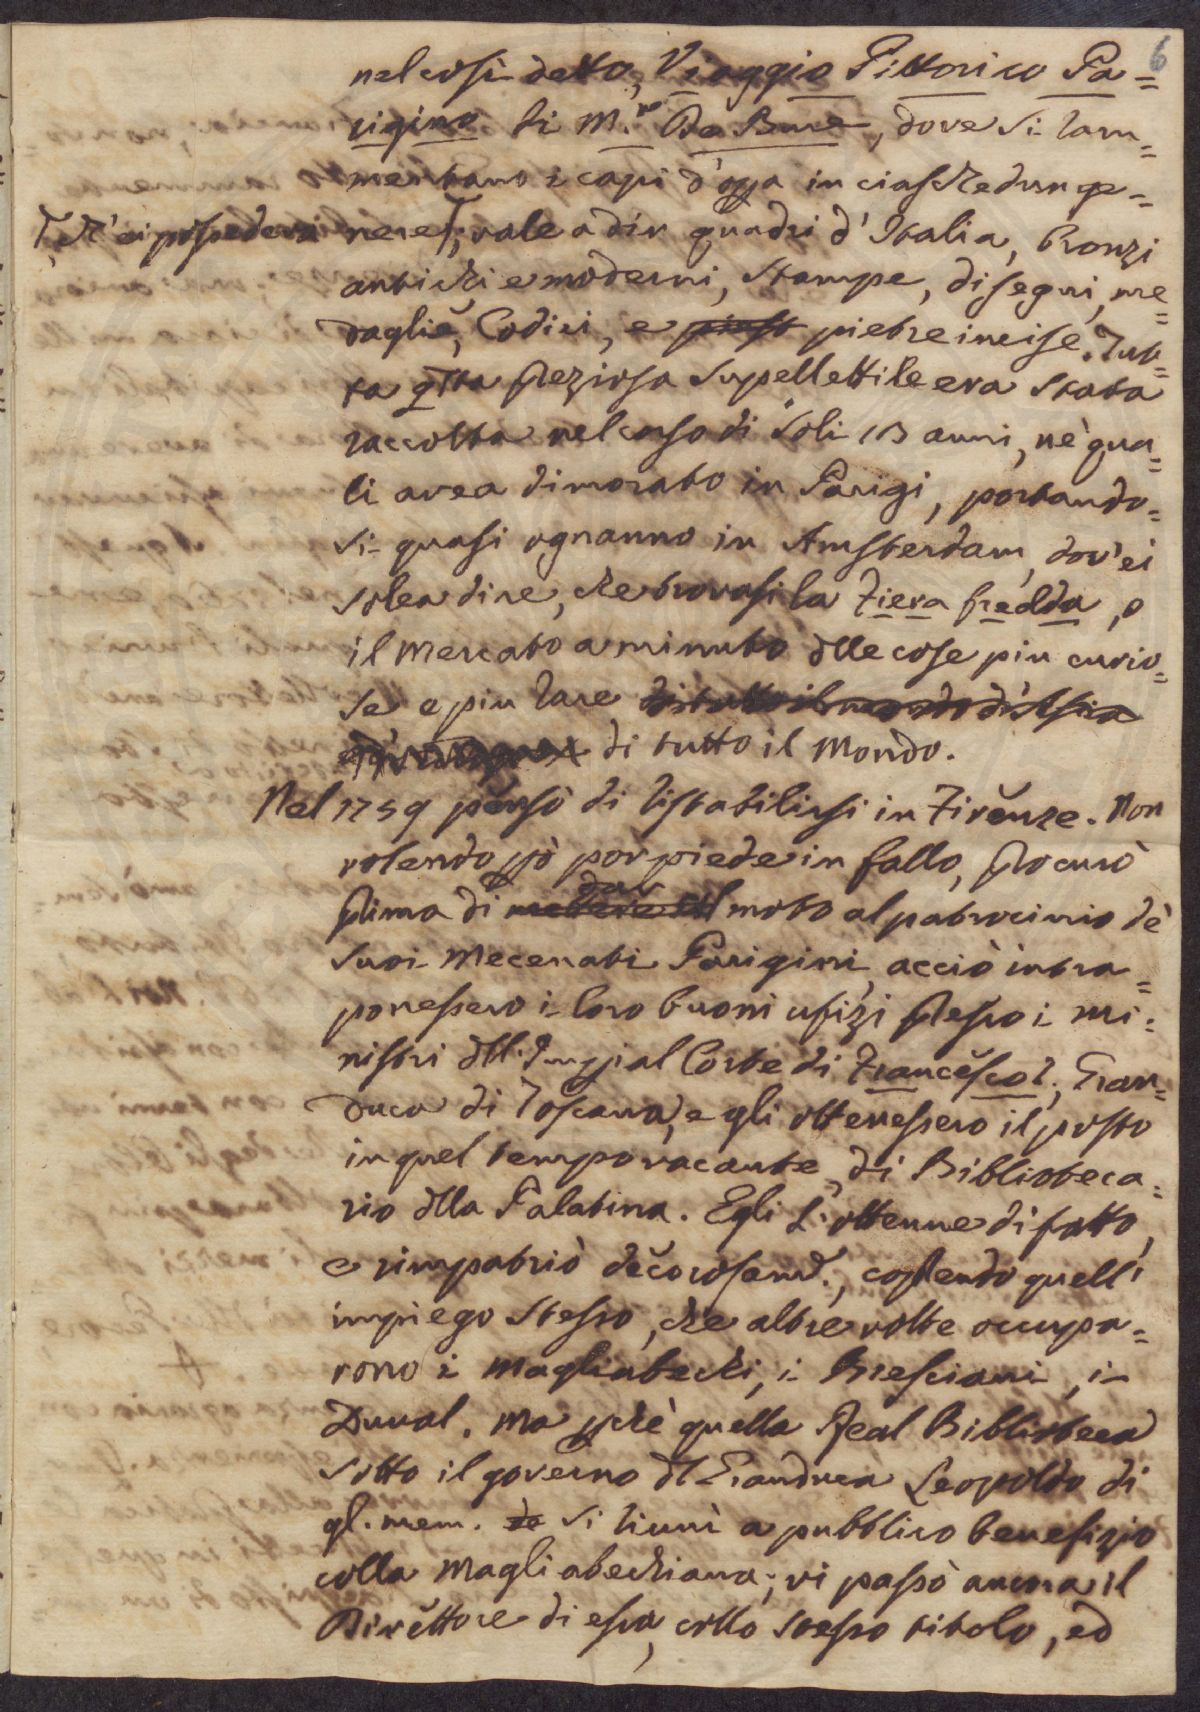 6
nel così detto, Viaggio Pittorico Pa=
rigino di M.r De Bure, dove si ram=
mentano i capi d'opa in ciaschedun ge=
ch'ei possedeva
nere, vale a dir quadri d'Italia, bronzi
antichi e moderni, stampe, disegni, me=
daglie, Codici, e piest pietre incise. Tut=
ta qtta preziosa supellettile era stata
raccolta nel corso di soli 13 anni, ne' qua=
li avea dimorato in Parigi, portando=
si quasi ognanno in Amsterdam, dov'ei
solea dire, che trovasi la Fiera fredda, o
il mercato a minuto dlle cose piu curio=
se e piu rare di tutto il mondo d'Asia
di tutto il Mondo.
Nel 1759 pensò di ristabilirsi in Firenze. Non
volendo pò por piede in fallo, procurò
dar
prima di mettere il moto al patrocinio de'
suoi Mecenati Parigini, acciò intra=
ponessero i loro buoni ufizi presso i mi=
nistri dll'Impial Corte di Francesco I, Gran=
duca di Toscana, e gli ottenessero il posto
in quel tempo vacante, di Biblioteca=
rio dlla Palatina. Egli l'ottenne di fatto,
e rimpatriò decorosamt., coprendo quell'
impiego stesso, che altre volte occupa=
rono i Magliabechi, i Bresciani, i
Duval. Ma pchè quella Real Biblioteca
sotto il governo dl Granduca Leopoldo di
gl. mem. de si riunì a pubblico benefizio
colla Magliabechiana; vi passò ancora il
Direttore di essa, collo stesso titolo, ed